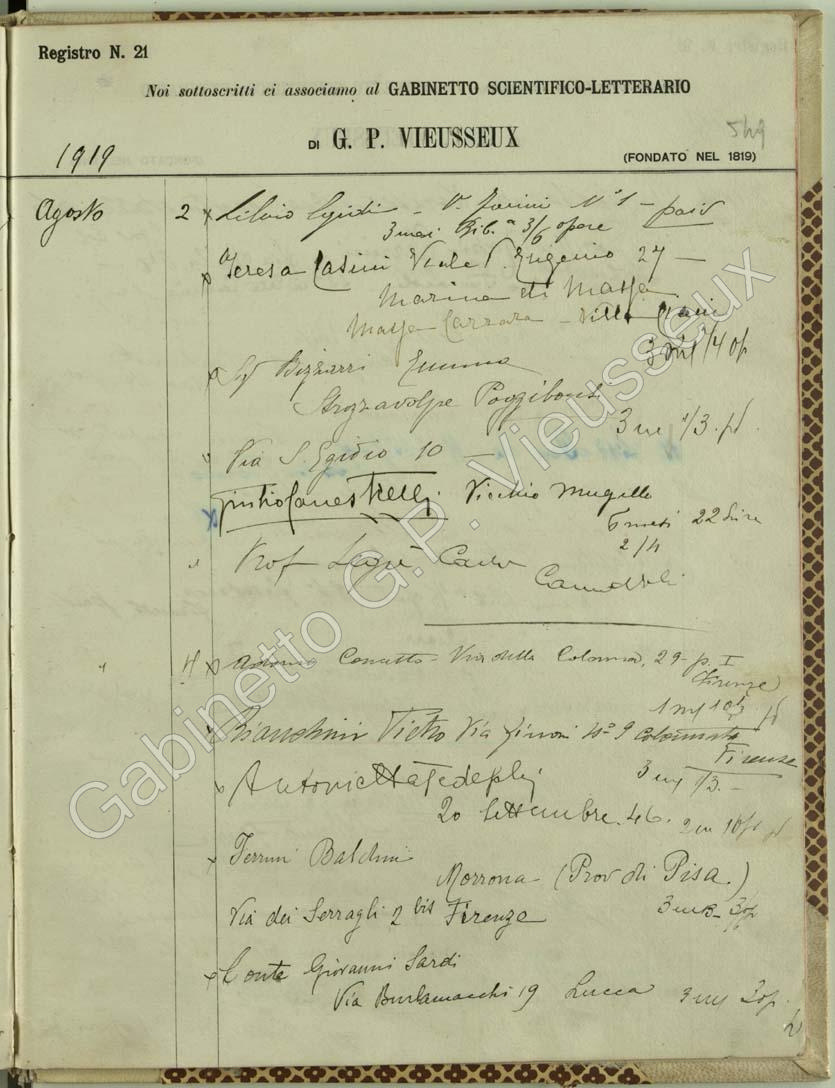 Registro N. 21
Noi sottoscritti ci associamo al GABINETTO SCIENTIFICO-LETTERARIO
DI G. P. VIEUSSEUX
549
1919
(FONDATO NEL 1819)
Agosto 2 Silvio Egidi - Va N° 1 -
3 mesi Bib.a 3/6 opere
Teresa Casini Viale P. Eugenio 27 -
Marina di Massa
Massa Carrara - Villa
3 1/4 op
Bizzarri Emma
Strozzavolpe Poggibonsi
3 m 1/3.
Via S. Egidio 10 -
Giulio Canestrelli Vicchio Mugello
6 mesi 22 Lire
2/4
Prof Carlo
Camaldoli
" 4 Via della Colonna, 29 - p. I
Firenze
1 m
Bianchini Pietro Via N° 9
Firenze
Antonietta Tedeschi 3 m 1/3. -
20 Settembre. 46. 2 m
Baldini
Morrona (Prov di Pisa.)
Via dei Serragli 2 bis Firenze 3 m
Conte Giovanni Sardi
Via Burlamacchi 19 Lucca 3 m 3 op.
Gabinetto G.P. Vieusseux